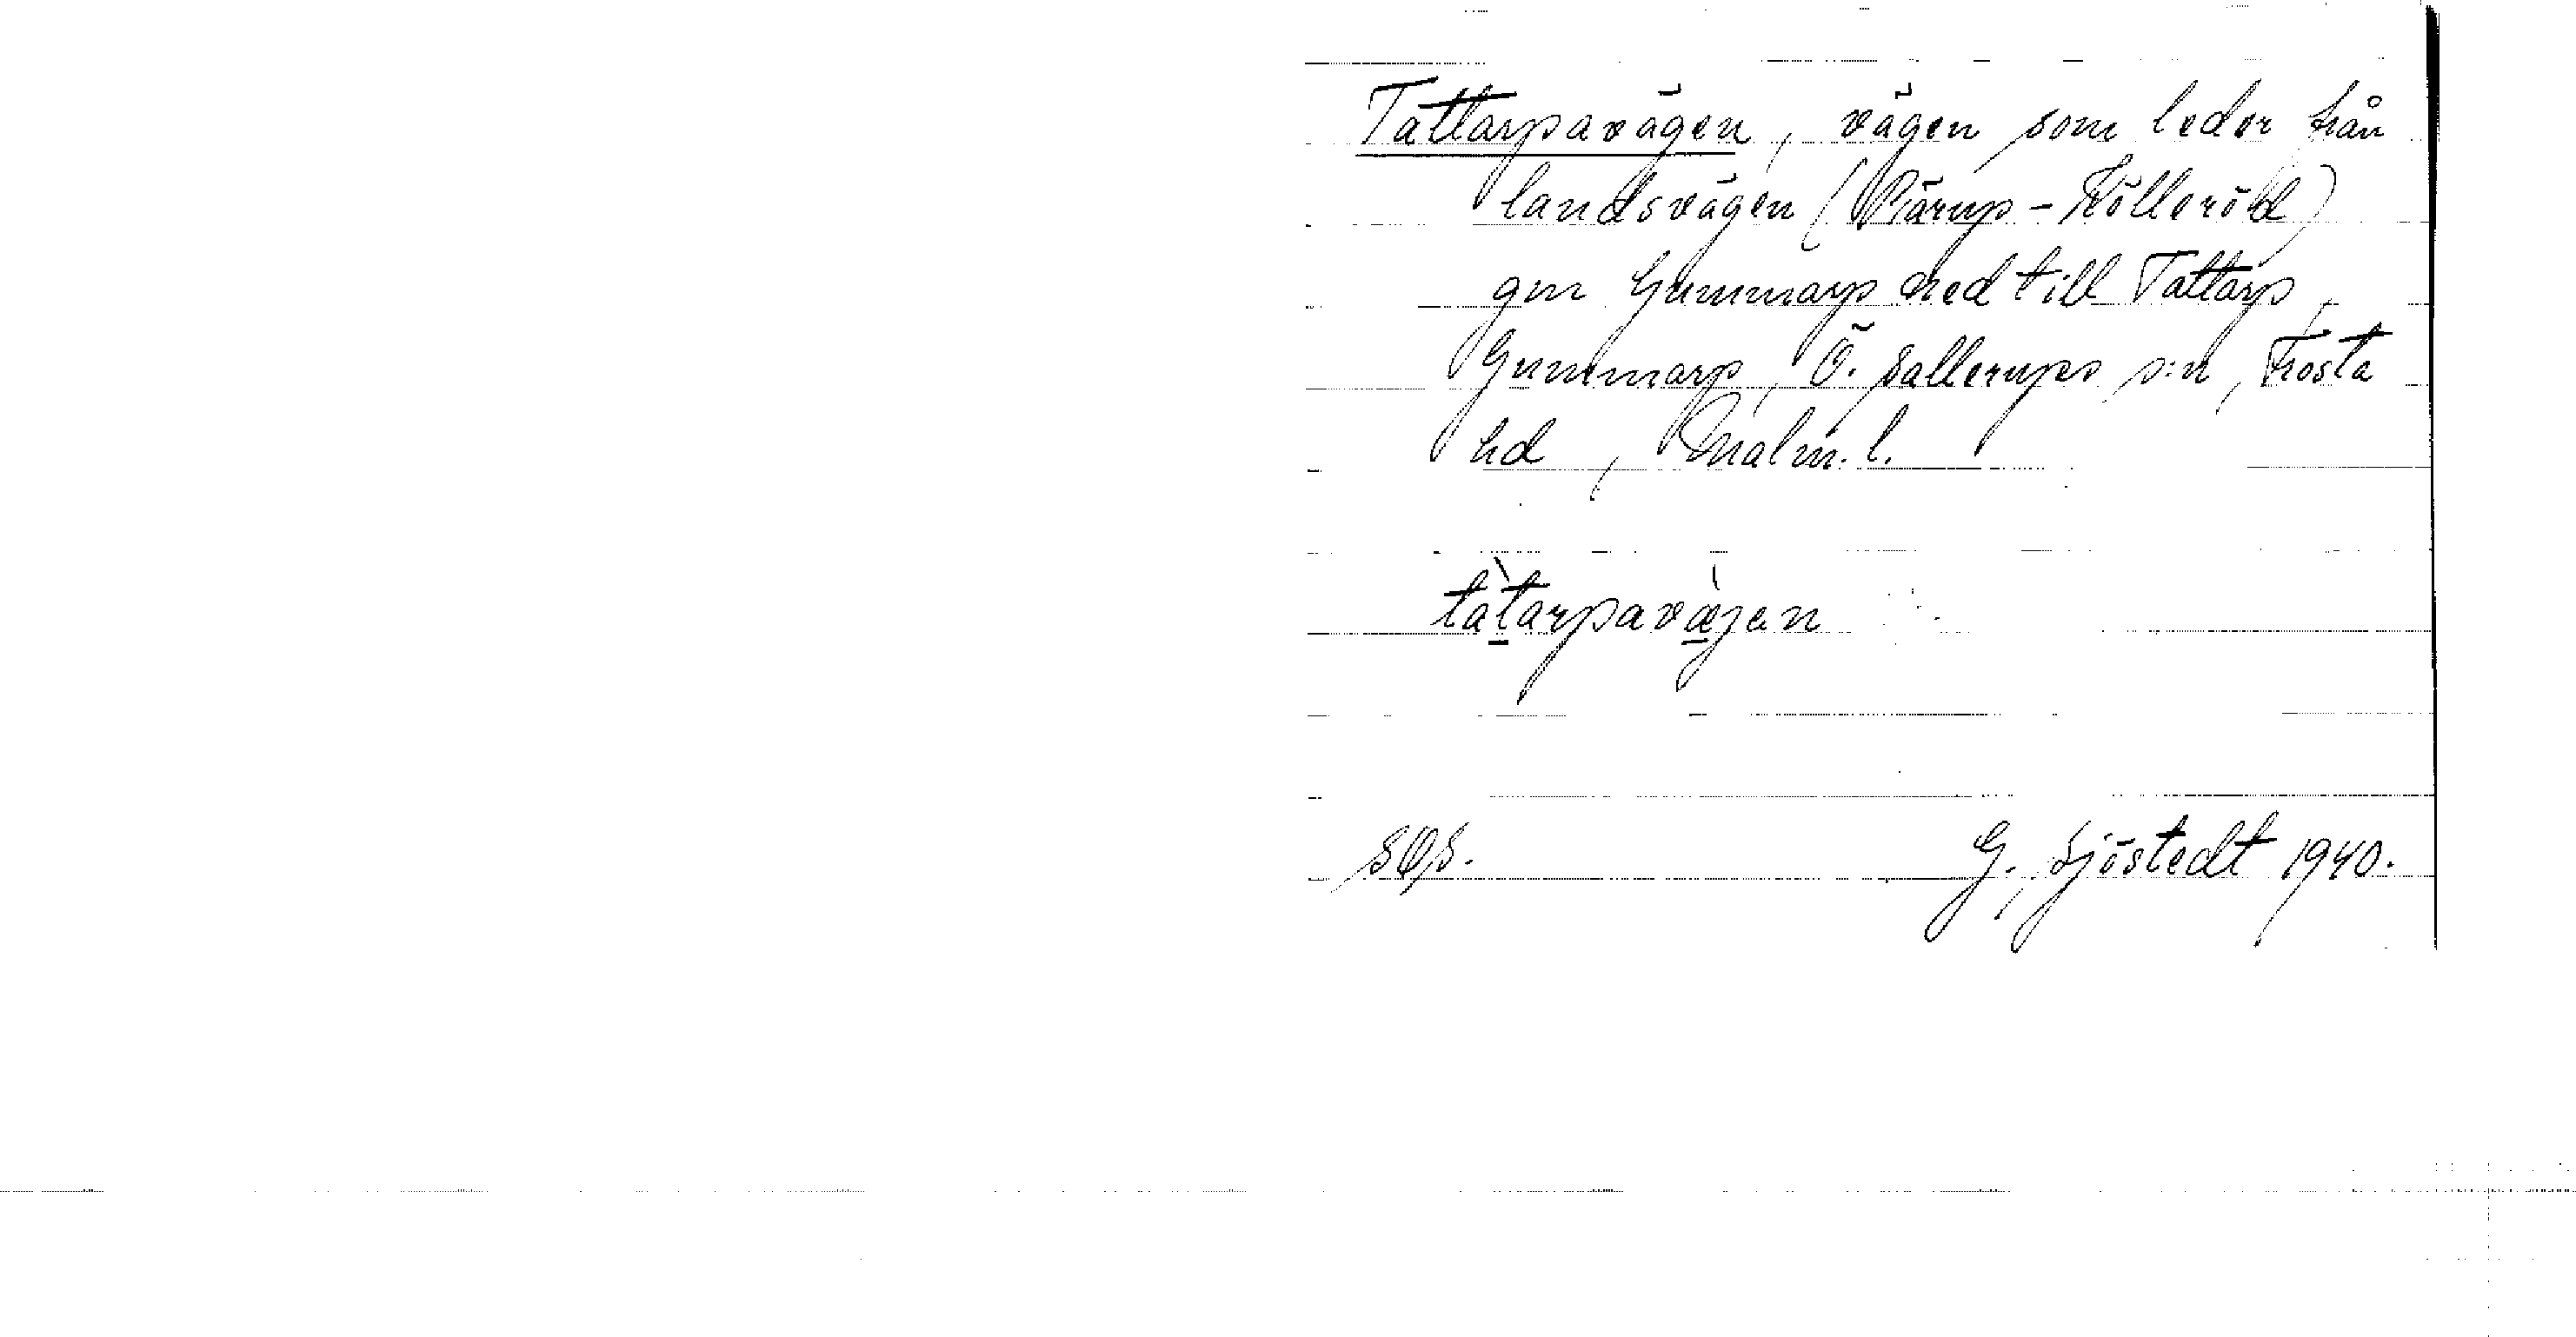 Tattarpavägen, vägen som leder från
landsvägen (Pärup-Kölleröd)
gm Gummarp ned till Tattarp,
Gummarp, Ö. Sallerups s:n, Frosta
hd, Malm. l.
tàtarpavæjen
SOS.
G. Sjöstedt 1940.